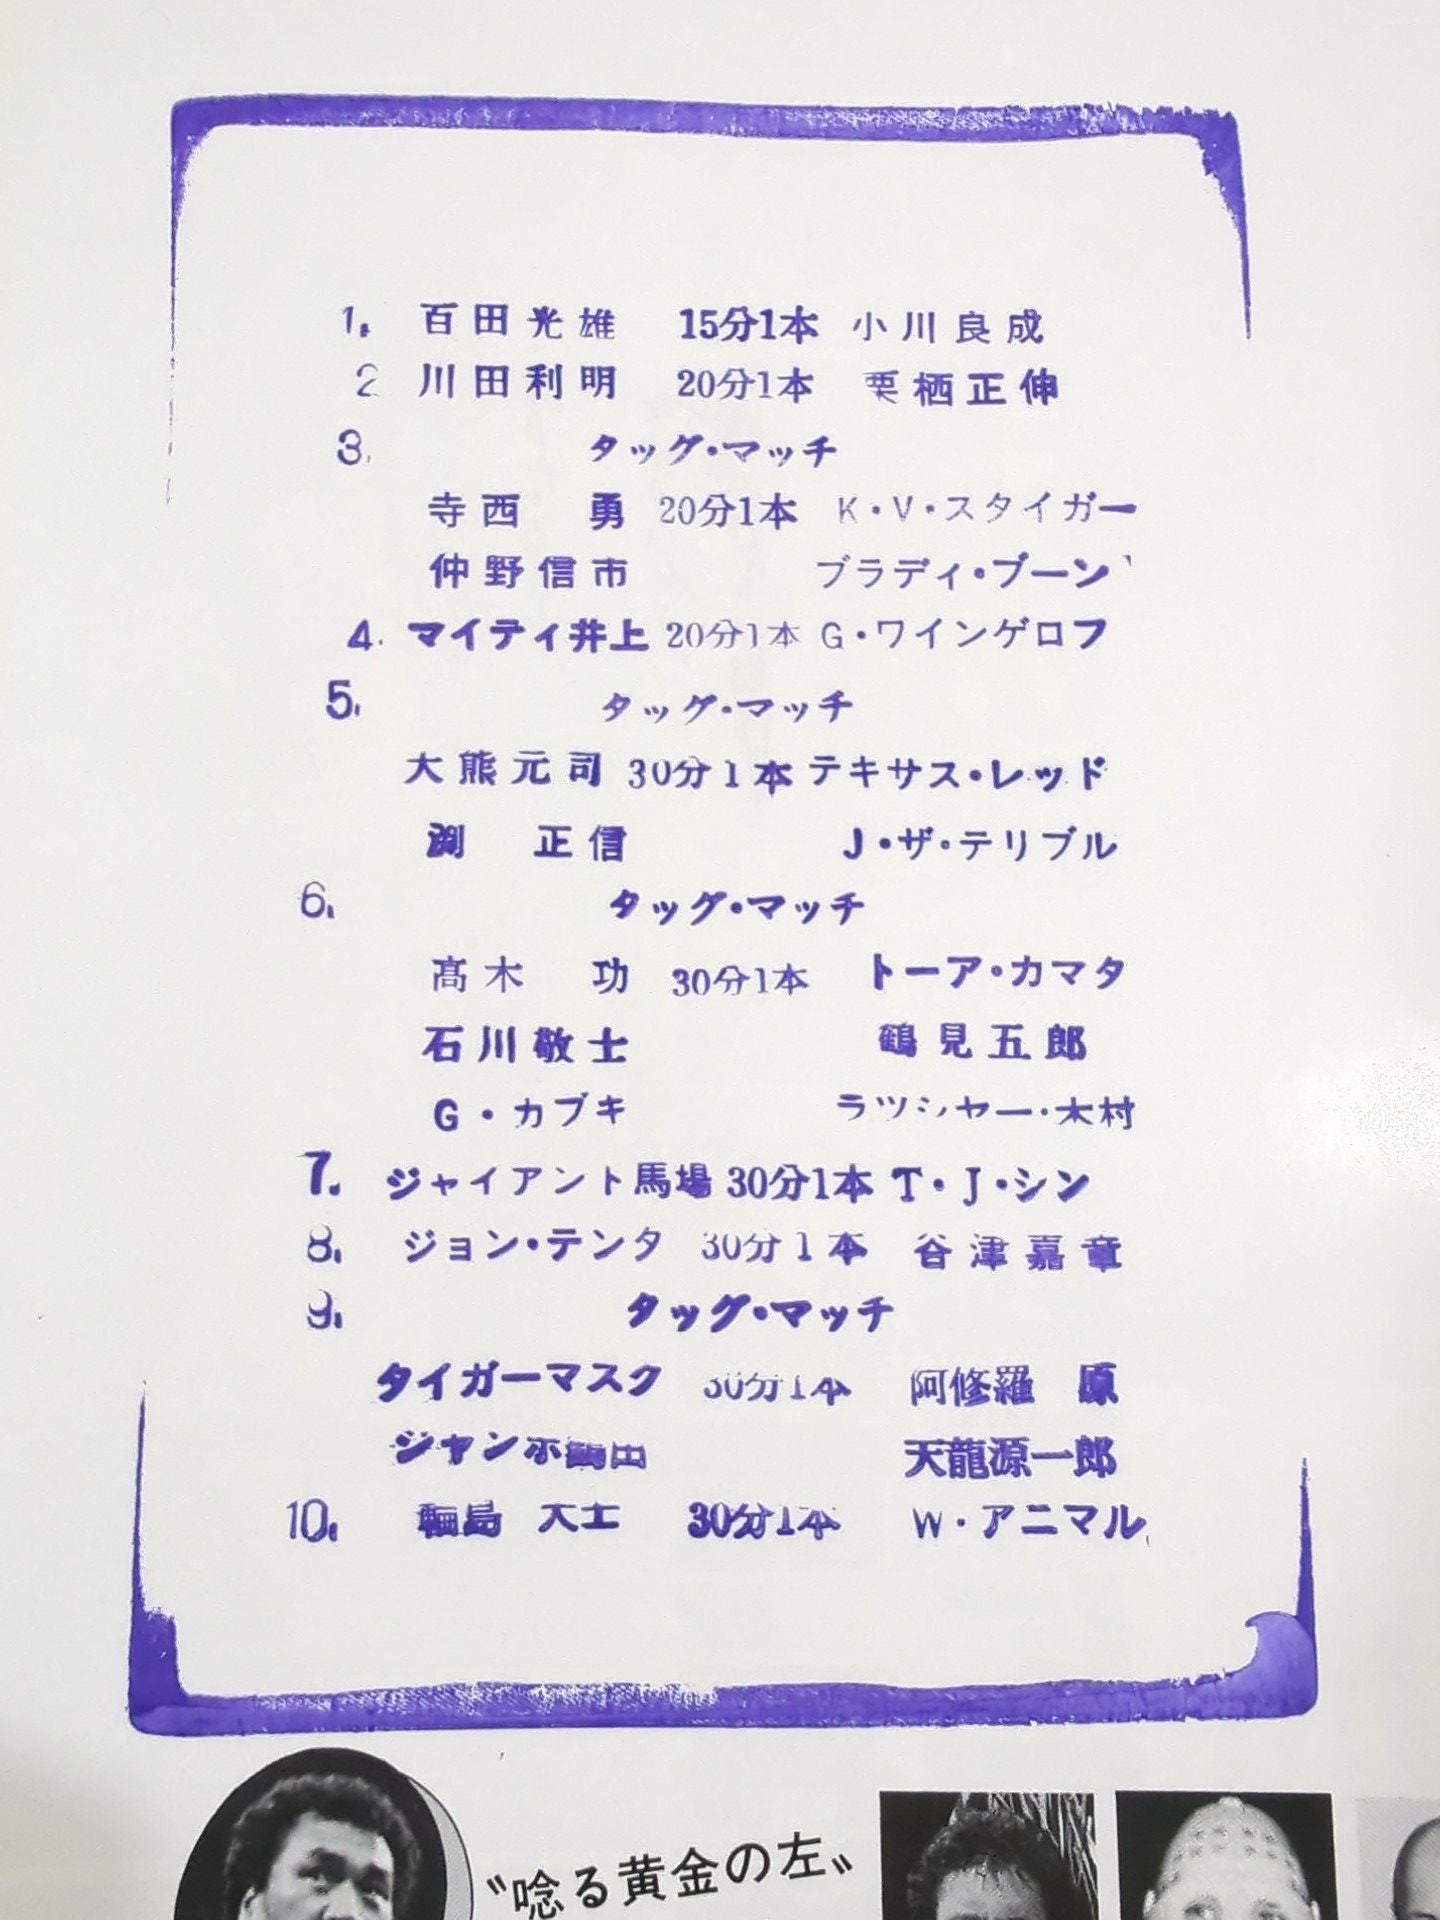 1. 百田光雄 15分1本 小川良成
2 川田利明 20分1本 栗栖正伸
3. タッグ・マッチ
寺西 勇 20分1本 K・V・スタイガー
仲野信市 ブラディ・ブーン
4. マイティ井上 20分1本 G・ワインゲロフ
5. タッグ・マッチ
大熊元司 30分1本 テキサス・レッド
渕 正信 J・ザ・テリブル
6. タッグ・マッチ
髙木 功 30分1本 トーア・カマタ
石川敬士 鶴見五郎
G・カブキ ラッシャー・木村
7. ジャイアント馬場 30分1本 T・J・シン
8. ジョン・テンタ 30分1本 谷津嘉章
9. タッグ・マッチ
タイガーマスク 30分1本 阿修羅 原
ジャンボ鶴田 天龍源一郎
10. 輪島 大士 30分1本 W・アニマル
〝唸る黄金の左〟